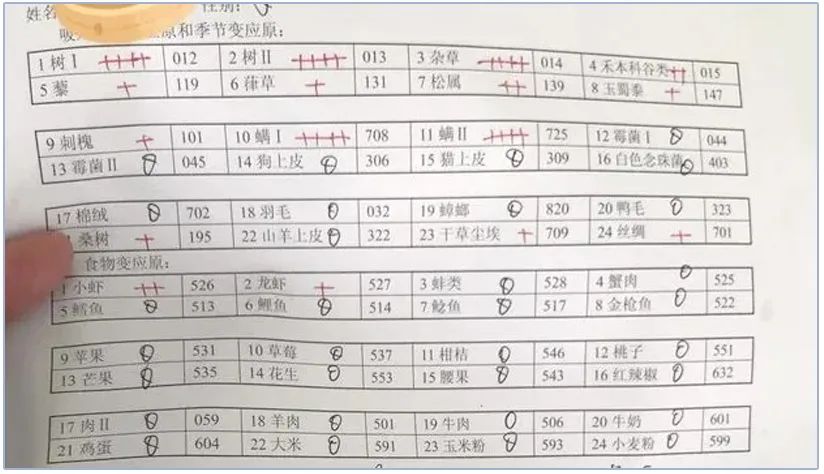 姓名 性别:
吸 原和季节变应原:
1 树 I ++++ 012 2 树 II ++++ 013 3 杂草 ++++ 014 4 禾本科谷类 ++ 015
5 藜 + 119 6 葎草 + 131 7 松属 ++ 139 8 玉蜀黍 + 147
9 刺槐 + 101 10 螨 I ++++ 708 11 螨 II ++++ 725 12 霉菌 I 0 044
13 霉菌 II 0 045 14 狗上皮 0 306 15 猫上皮 0 309 16 白色念珠菌 0 403
17 棉绒 0 702 18 羽毛 0 032 19 蟑螂 0 820 20 鸭毛 0 323
桑树 + 195 22 山羊上皮 0 322 23 干草尘埃 + 709 24 丝绸 + 701
食物变应原:
1 小虾 ++ 526 2 龙虾 + 527 3 蚌类 0 528 4 蟹肉 0 525
5 鳕鱼 0 513 6 鲤鱼 0 514 7 鲶鱼 0 517 8 金枪鱼 0 522
9 苹果 0 531 10 草莓 0 537 11 柑桔 0 546 12 桃子 0 551
13 芒果 0 535 14 花生 0 553 15 腰果 0 543 16 红辣椒 0 632
17 肉 II 0 059 18 羊肉 0 501 19 牛肉 0 506 20 牛奶 0 601
21 鸡蛋 0 604 22 大米 0 591 23 玉米粉 0 593 24 小麦粉 0 599